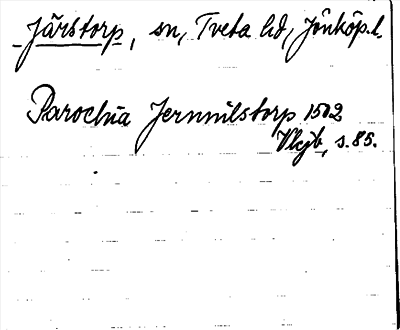 Järstorp, sn, Tveta hd, Jönköp. l.
Parochia Jernnilstorp 1502
Vkjb, s. 85.